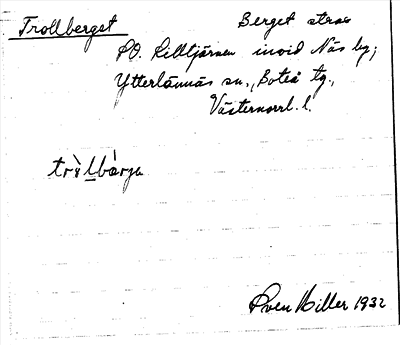 Trollberget Berget strax
SO. Lilltjärnen invid Näs by,
Ytterlännäs sn., Boteå tg.,
Västernorrl. l.
Sven Hiller 1932